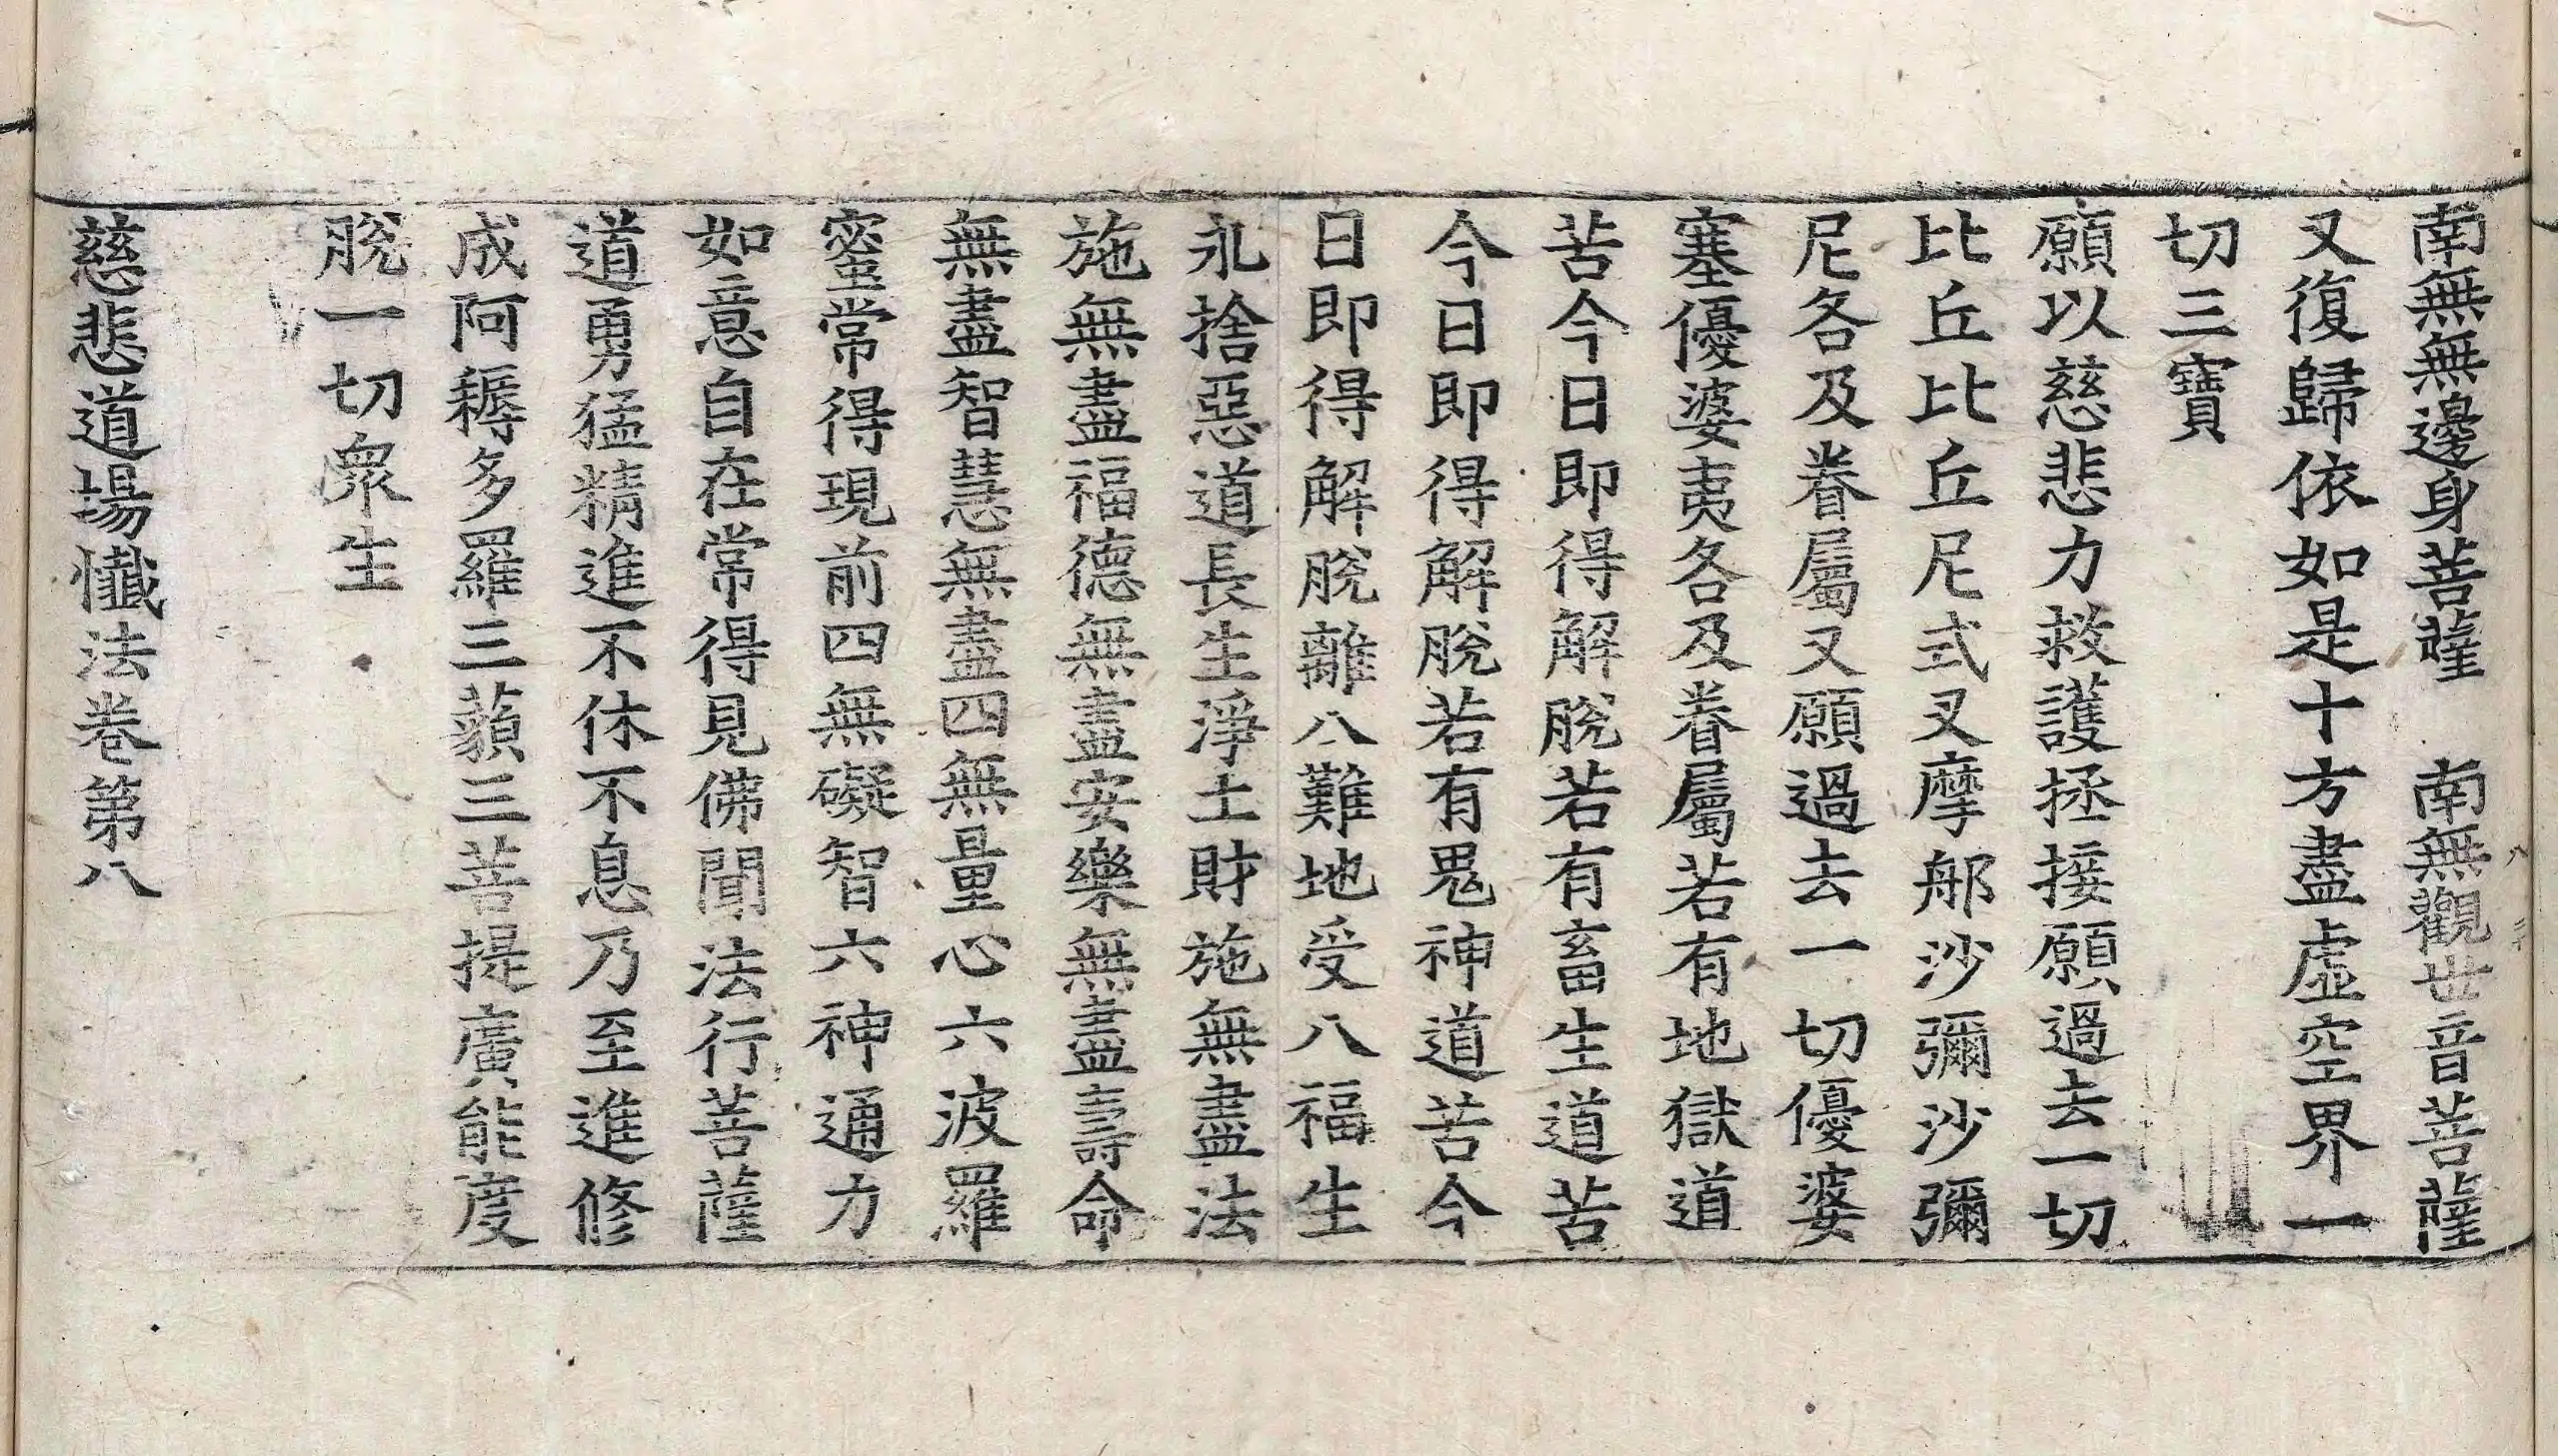 南無無邊身菩薩　南無觀世音菩薩
又復歸依如是十方盡虛空界一
切三寶
願以慈悲力救護拯接願過去一切
比丘比丘尼式叉摩那沙彌沙彌
尼各及眷屬又願過去一切優婆
塞優婆夷各及眷屬若有地獄道
苦今日即得解脫若有畜生道苦
今日即得解脫若有鬼神道苦今
日即得解脫離八難地受八福生
永捨惡道長生淨土財施無盡法
施無盡福德無盡安樂無盡壽命
無盡智慧無盡四無量心六波羅
蜜常得現前四無礙智六神通力
如意自在常得見佛聞法行菩薩
道勇猛精進不休不息乃至進修
成阿耨多羅三藐三菩提廣能度
脫一切衆生
慈悲道場懺法卷第八